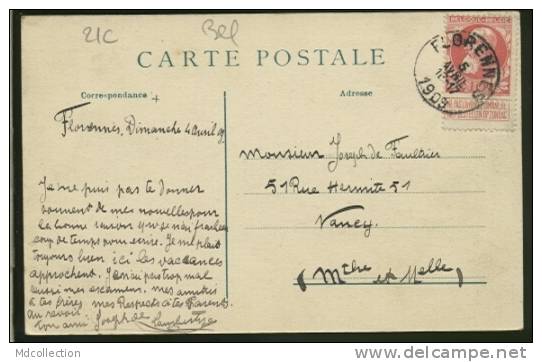 21C
Bel
CARTE POSTALE
Correspondance
Adresse
FLORENNES
5
AVRIL
1909
BELGIQUE·BELGIE
Florennes, Dimanche 4 avril 09
Monsieur Joseph de
51 Rue Hermite 51
Nancy
(Mthe et Melle)
Je ne puis pas te donner
souvent de mes nouvelles pour
la bonne raison que je n'ai
coup de temps pour écrire. Je me plait
toujours bien ici les vacances
approchent. J'ai réussi pas trop mal
mes examens, mes amitiés
à tes frères, mes Respects à tes Parents.
au revoir
ton ami Joseph de
MdCollection
http://www.delcampe.net